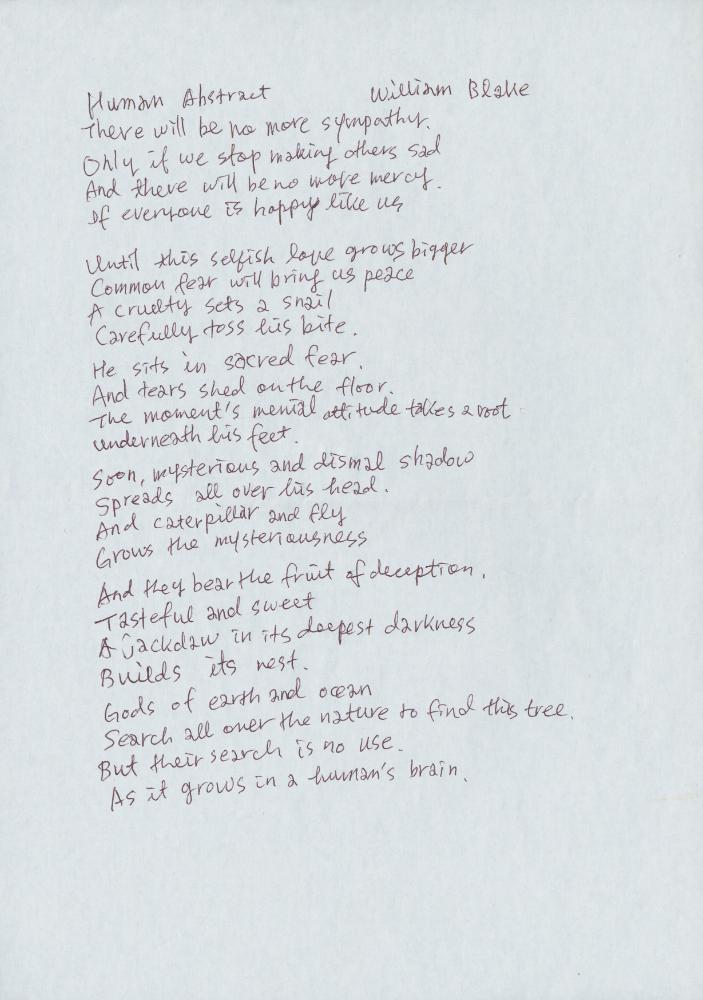 Human Abstract William Blake
There will be no more sympathy.
Only if we stop making others sad
And there will be no more mercy.
If everyone is happy like us
Until this selfish love grows bigger
Common fear will bring us peace
A cruelty sets a snail
Carefully toss his bite.
He sits in sacred fear.
And tears shed on the floor.
The moment's mental attitude takes a root
underneath his feet.
Soon, mysterious and dismal shadow
Spreads all over his head.
And caterpillar and fly
Grows the mysteriousness
And they bear the fruit of deception.
Tasteful and sweet
A jackdaw in its deepest darkness
Builds its nest.
Gods of earth and ocean
Search all over the nature to find this tree.
But their search is no use.
As it grows in a human's brain.